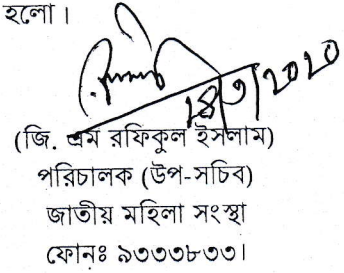 হলো।
18/3/2020
(জি. এম রফিকুল ইসলাম)
পরিচালক (উপ-সচিব)
জাতীয় মহিলা সংস্থা
ফোনঃ ৯৩৩৩৮৩৩।